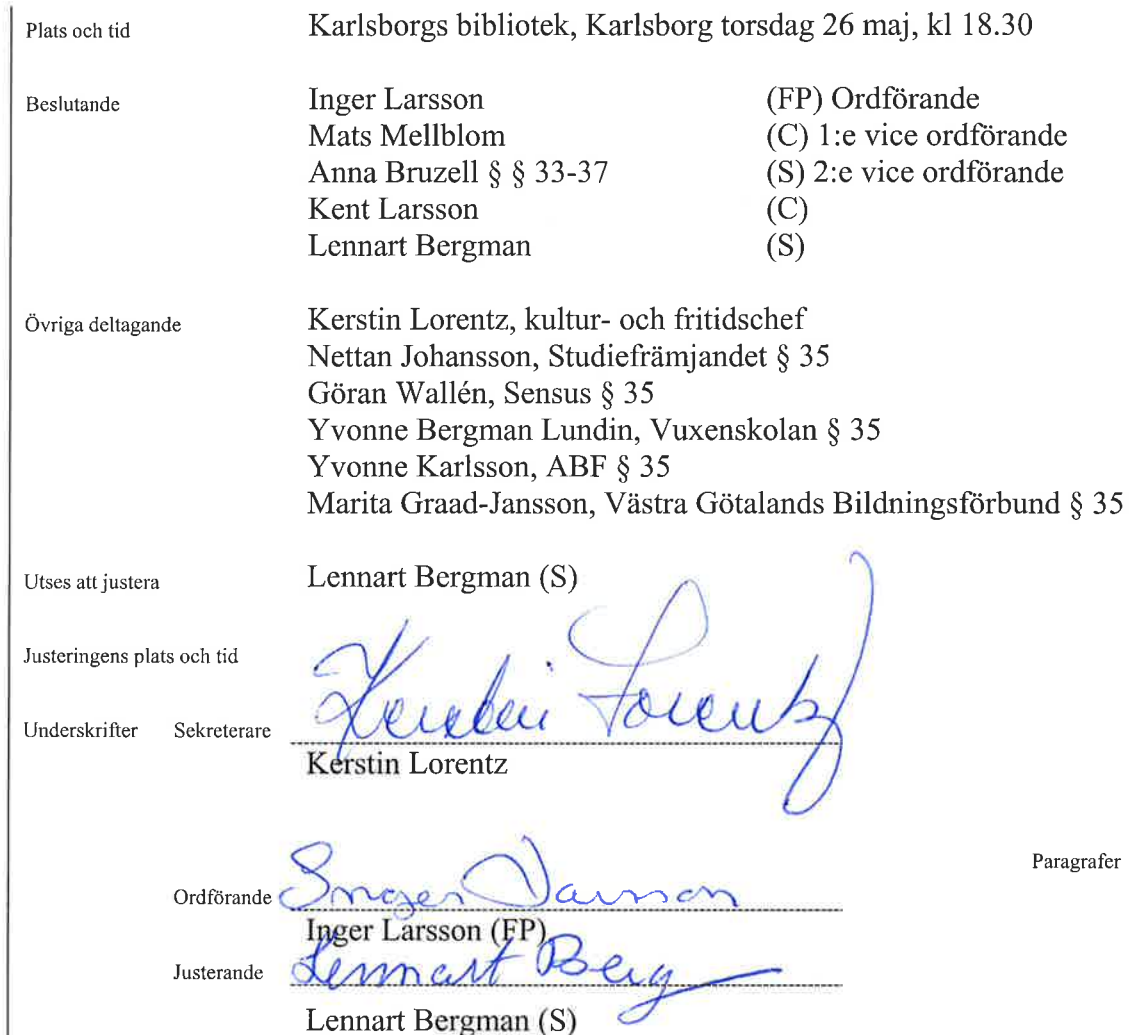 Plats och tid Karlsborgs bibliotek, Karlsborg torsdag 26 maj, kl 18.30
Beslutande Inger Larsson (FP) Ordförande
Mats Mellblom (C) 1:e vice ordförande
Anna Bruzell § § 33-37 (S) 2:e vice ordförande
Kent Larsson (C)
Lennart Bergman (S)
Övriga deltagande Kerstin Lorentz, kultur- och fritidschef
Nettan Johansson, Studiefrämjandet § 35
Göran Wallén, Sensus § 35
Yvonne Bergman Lundin, Vuxenskolan § 35
Yvonne Karlsson, ABF § 35
Marita Graad-Jansson, Västra Götalands Bildningsförbund § 35
Utses att justera Lennart Bergman (S)
Justeringens plats och tid
Underskrifter Sekreterare Kerstin Lorentz
Kerstin Lorentz
Paragrafer
Ordförande Inger Larsson
Inger Larsson (FP)
Justerande Lennart Berg
Lennart Bergman (S)